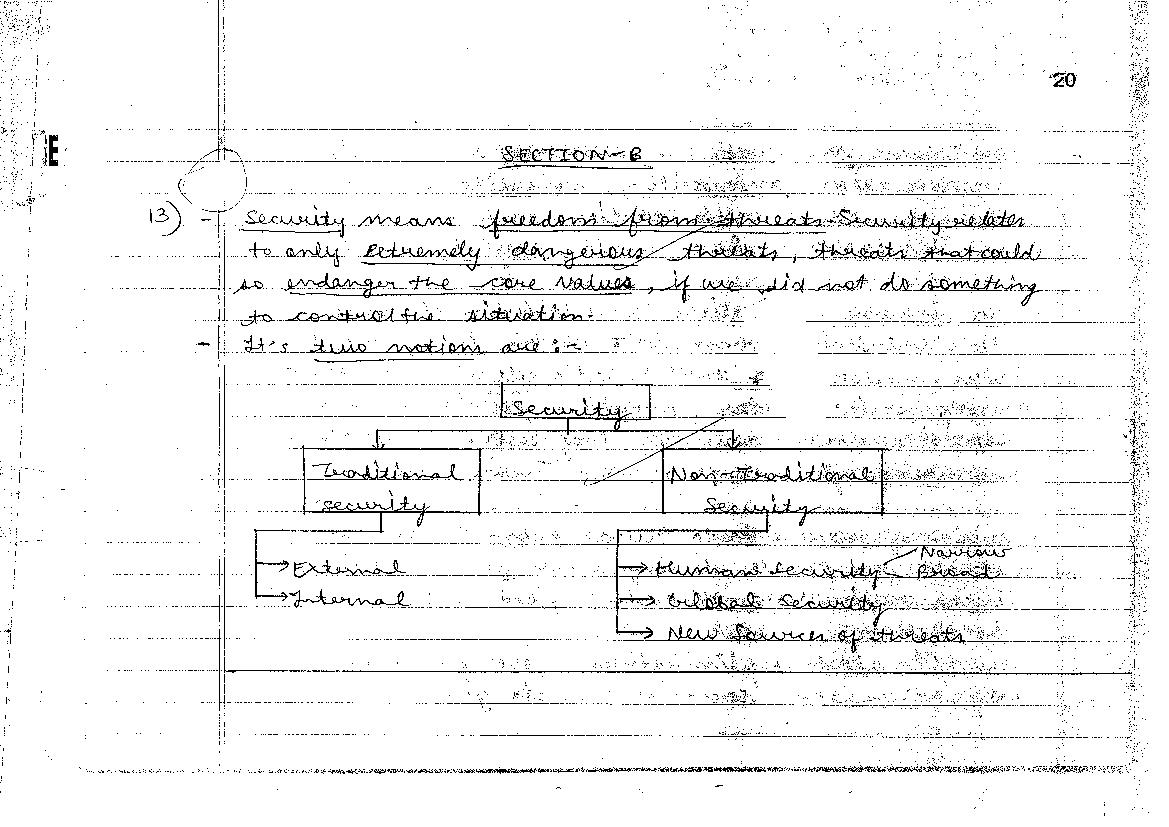 20
E
SECTION-B
13) - Security means freedom from threats. Security relates
to only extremely dangerous threats, threats that could
so endanger the core values, if we did not do something
to control the situation.
- It's two notions are :-
Security
Traditional security
Non-Traditional Security
External
Internal
Human security Narrow Broad
Global Security
New Sources of threats